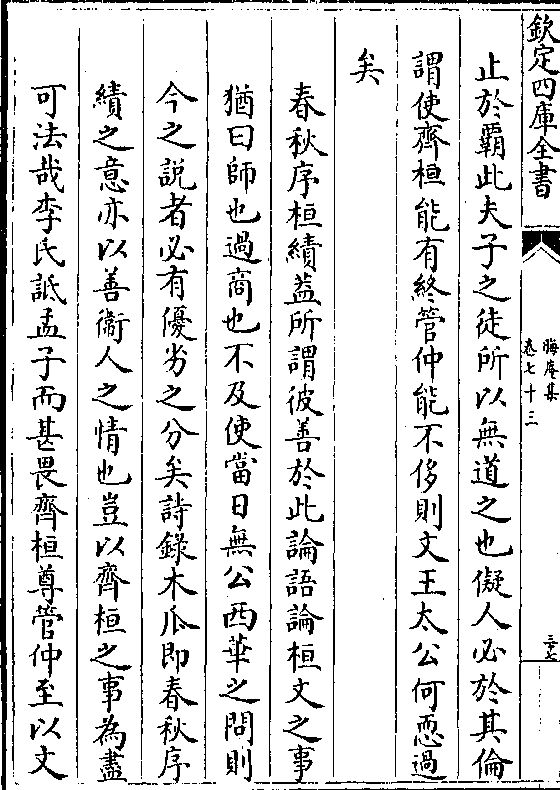 欽定四庫全書
晦庵集
卷七十三
三七
止於霸此夫子之徒所以無道之也儗人必於其倫
謂使齊桓能有終管仲能不侈則文王太公何恧過
矣
春秋序桓績蓋所謂彼善於此論語論桓文之事
猶曰師也過商也不及使當日無公西華之問則
今之説者必有優劣之分矣詩錄木瓜即春秋序
績之意亦以善衞人之情也豈以齊桓之事為盡
可法哉李氏詆孟子而甚畏齊桓尊管仲至以文